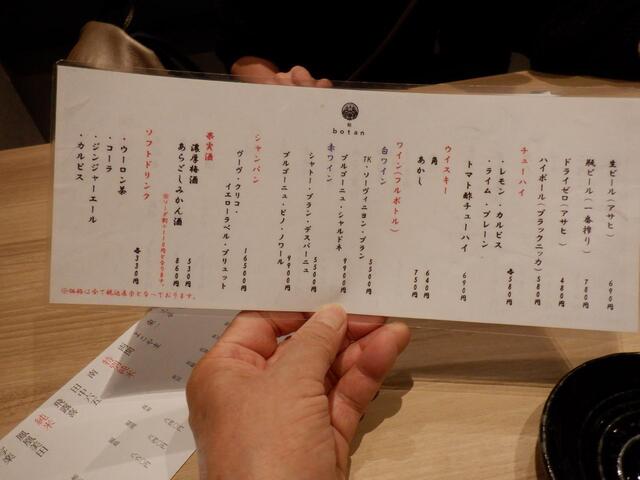 鮨
botan
生ビール(アサヒ) 690円
瓶ビール(一番搾り) 780円
ドライゼロ(アサヒ) 480円
ハイボール(ブラックニッカ) 580円
チューハイ
・レモン・カルピス
・ライム・プレーン 各580円
トマト酢チューハイ 690円
ウイスキー
角 640円
あかし 750円
ワイン(フルボトル)
白ワイン
TK・ソーヴィニヨン・ブラン 5500円
ブルゴーニュ・シャルドネ 9900円
赤ワイン
シャトー・ブラン・デスパーニュ 5500円
ブルゴーニュ・ピノ・ノワール 9900円
シャンパン
ヴーヴ・クリコ・
イエローラベル・ブリュット 16500円
果実酒
濃厚梅酒 530円
あらごしみかん酒 860円
※ソーダ割+110円となります。
ソフトドリンク
・ウーロン茶
・コーラ
・ジンジャーエール
・カルピス 各330円
※価格は全て税込表示となっております。
特別純米
田中六五
純米